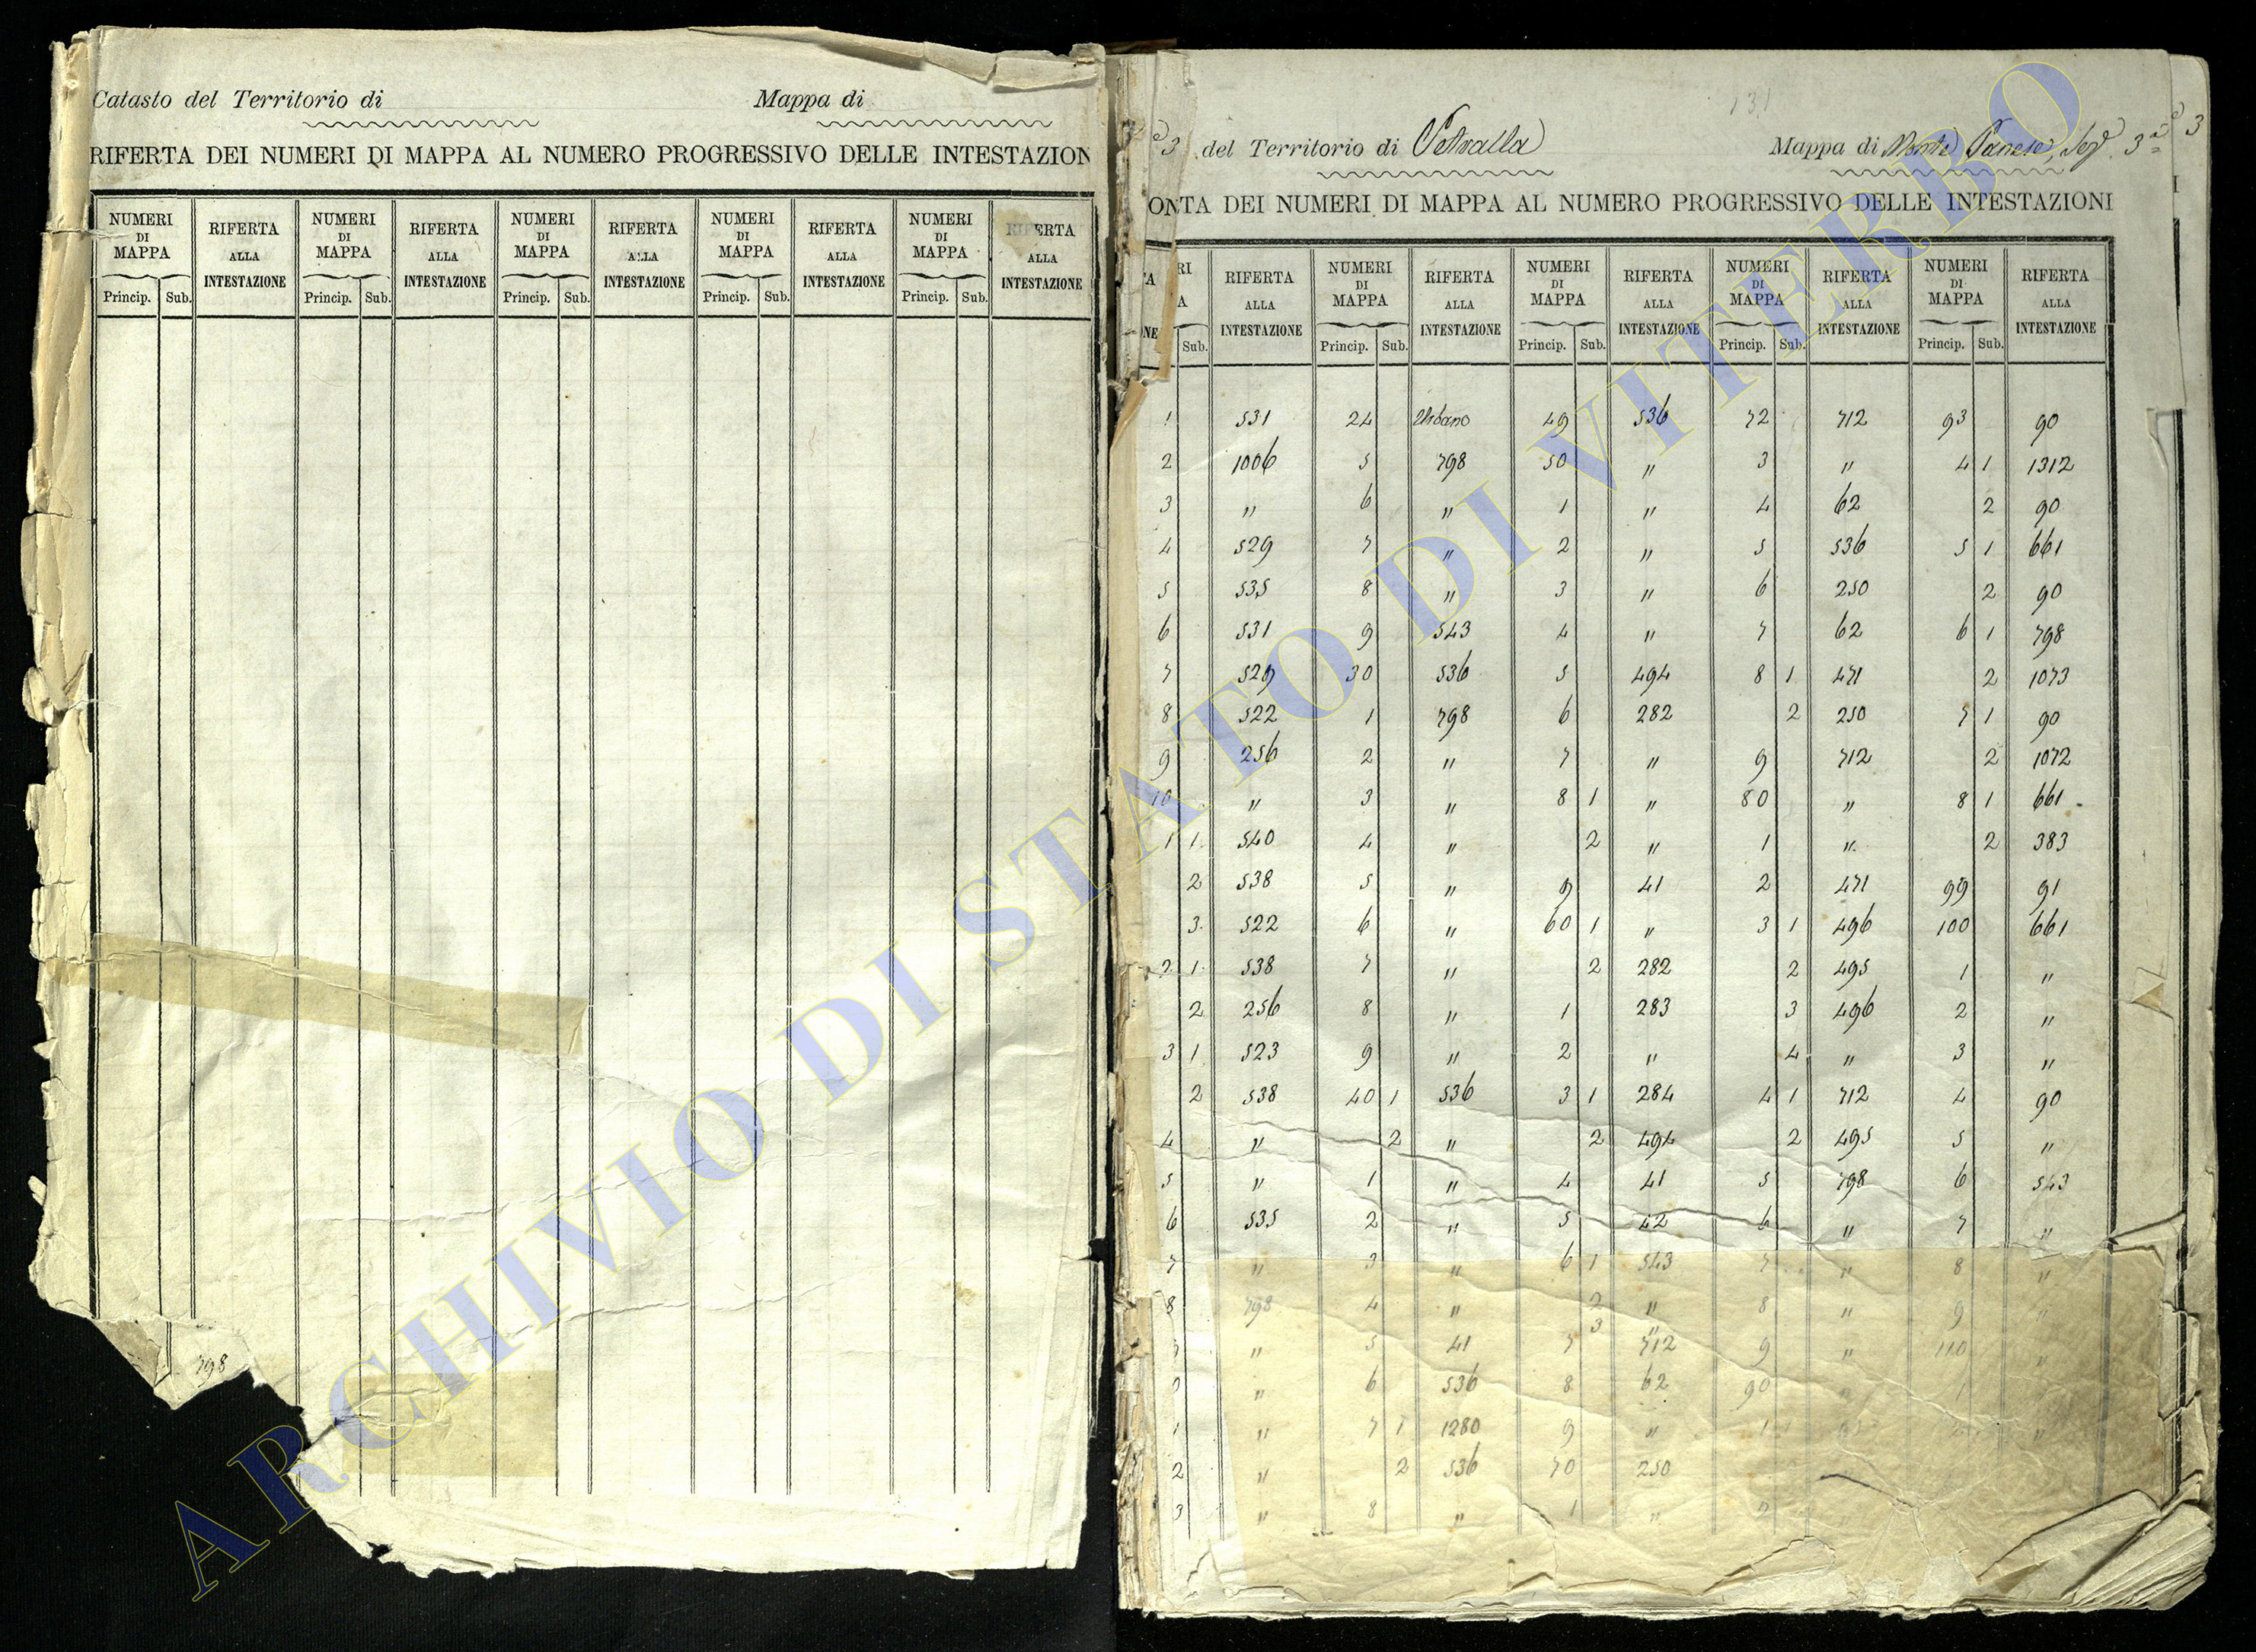 Catasto del Territorio di Mappa di
RIFERTA DEI NUMERI DI MAPPA AL NUMERO PROGRESSIVO DELLE INTESTAZION
NUMERI DI MAPPA RIFERTA ALLA INTESTAZIONE NUMERI DI MAPPA RIFERTA ALLA INTESTAZIONE NUMERI DI MAPPA RIFERTA ALLA INTESTAZIONE NUMERI DI MAPPA RIFERTA ALLA INTESTAZIONE NUMERI DI MAPPA RIFERTA ALLA INTESTAZIONE
Princip. Sub. Princip. Sub. Princip. Sub. Princip. Sub. Princip. Sub.
798
131
3 del Territorio di Vetralla Mappa di Monte Panese, Sez. 3ª
3
ONTA DEI NUMERI DI MAPPA AL NUMERO PROGRESSIVO DELLE INTESTAZIONI
RI A RIFERTA ALLA INTESTAZIONE NUMERI DI MAPPA RIFERTA ALLA INTESTAZIONE NUMERI DI MAPPA RIFERTA ALLA INTESTAZIONE NUMERI DI MAPPA RIFERTA ALLA INTESTAZIONE NUMERI DI MAPPA RIFERTA ALLA INTESTAZIONE
Sub. Princip. Sub. Princip. Sub. Princip. Sub. Princip. Sub.
1 531 24 Urbano 49 536 72 712 93 90
2 1006 5 798 50 " 3 " 4 1 1312
3 " 6 " 1 " 4 62 2 90
4 529 7 " 2 " 5 536 5 1 661
5 535 8 " 3 " 6 250 2 90
6 531 9 543 4 " 7 62 6 1 798
7 529 30 536 5 494 8 1 471 2 1073
8 522 1 798 6 282 2 250 7 1 90
9 256 2 " 7 " 9 712 2 1072
10 " 3 " 8 1 " 80 " 8 1 661
1 1 540 4 " 2 " 1 " 2 383
2 538 5 " 9 41 2 471 99 91
3 522 6 " 60 1 " 3 1 496 100 661
2 1 538 7 " 2 282 2 495 1 "
2 256 8 " 1 283 3 496 2 "
3 1 523 9 " 2 " 4 " 3 "
2 538 40 1 536 3 1 284 4 1 712 4 90
4 " 2 " 2 494 2 495 5 "
5 " 1 " 4 41 5 798 6 543
6 535 2 " 5 42 6 " 7 "
7 " 3 " 6 1 543 7 " 8 "
8 798 4 " 2 " 8 " 9 "
3 "
" 5 41 7 712 9 " 110 "
" 6 536 8 62 90 1
1 " 7 1 1280 9 " 1 "
2 " 2 536 70 250
3 " 8 " 1 " 2
ARCHIVIO DI STATO DI VITERBO